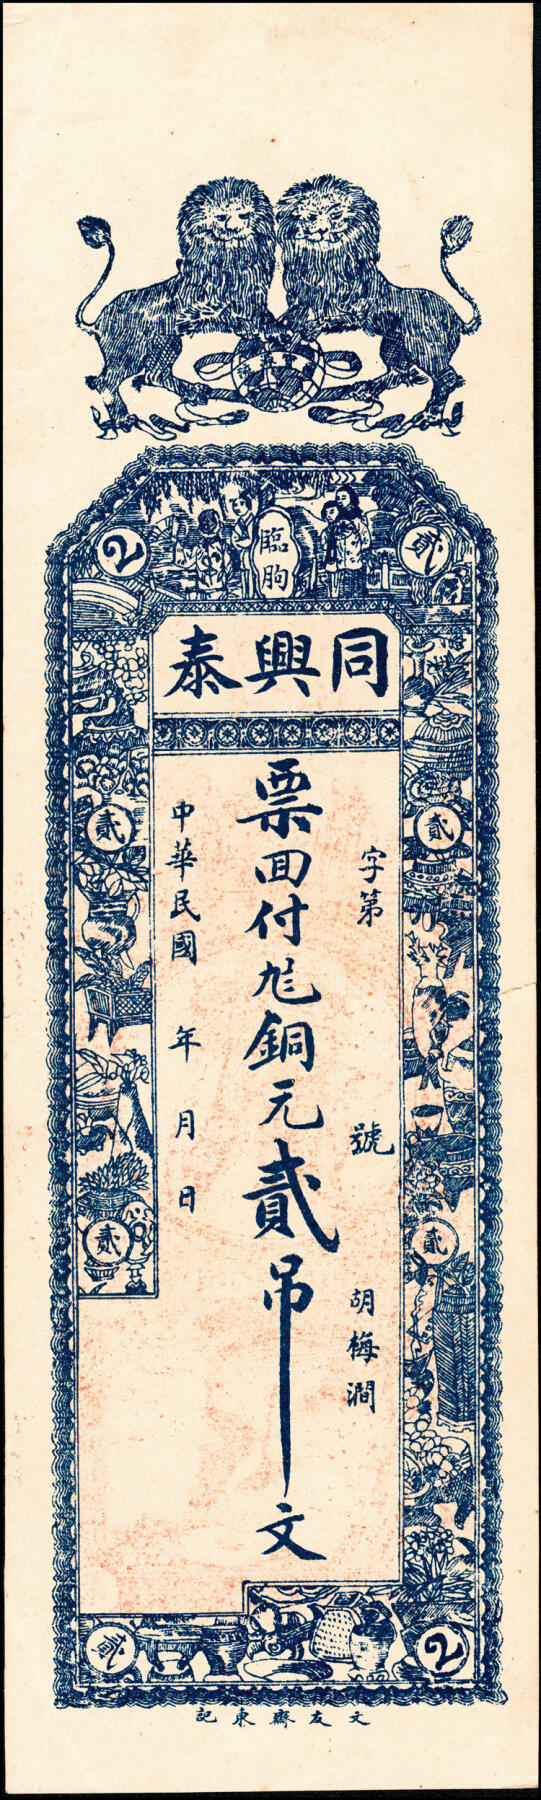 臨朐
2
貳
同興泰
字第
號
胡梅澗
票回付尨銅元貳吊文
中華民國
年
月
日
貳
貳
貳
貳
貳
2
文友齋東記